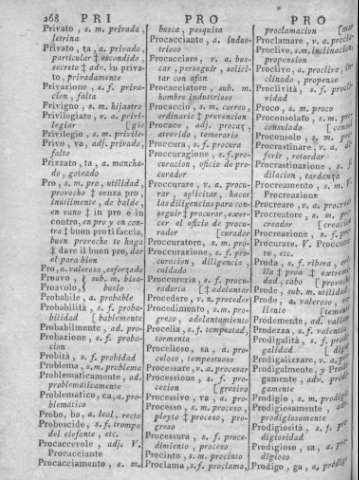 268 PRI PRO PRO
Privato, s. m. privada,
letrina
Privato, ta, a. privado,
particular ‡ escondido,
secreto ‡ adv. in priva-
to, privadamente
Privazione, s. f. priva-
cion, falta
Privigno, s. m. hijastro
Privilegiato, v. a. privi-
legiar
Privilegio, s. m. privile-
Privo, va, adj. privado,
falto
Prizzato, ta, a. mancha-
do, goteado
Pro, s. m. pro, utilidad,
provecho ‡ senza pro,
inutilmente, de balde,
en vano ‡ in pro e in
contro, en pro y en con-
tra ‡ buon pro ti faccia,
buen provecho te haga
‡ dare il buon pro, dar
el para bien
Pro, a. valeroso, esforzado
Proavo, s. m. bisa-
Proavolo, buelo
Probabile, a. probable
Probabilità, s. f. proba-
bilidad [blemente
Probabilmente, ad. pro-
Probazione, s. f. proba-
cion
Probità, s. f. probidad
Problema, s. m. problema
Problematicamente, ad.
problematicamente
Problematico, ca, a. pro-
blemático
Probo, ba, a. leal, recto
Proboscide, s. f. trompa
del elefante, etc.
Procaccevole, adj. V.
Procacciante
Procacciamento, s. m.
busca, pesquisa
Procacciante, a. indus-
trioso
Procacciare, v. a. bus-
car, perseguir, solici-
tar con afan
Procacciatore, sub. m.
hombre industrioso
Procaccio, s. m. correo,
ordinario ‡ prevencion
Procace, adj. procaz,
atrevido, temerario
Proccura, s. f. procura
Proccuragione, s. f. pro-
curacion, oficio de pro-
curador
Proccurare, v. a. procu-
rar, solicitar, hacer
las diligencias para con-
seguir ‡ procurar, exer-
cer el oficio de procu-
rador
Proccuratore, s. m. pro-
Proccurazione, s. f. pro-
curacion, diligencia,
cuidado
Proccurezia, s. f. procu-
raduria [‡ adelantar
Procedere, v. n. proceder
Procedimento, s. m. pro-
greso, adelantamiento
Procella, s. f. tempestad,
tormenta
Procelloso, sa, a. pro-
celoso, tempestuoso
Processare, v. a. procesar
Processione, s. f. pro-
cesion
Processivo, va, a. pro-
Processo, s. m. proceso,
pleyto ‡ proceso, pro-
greso
Processura, s. f. proce-
dimiento, proceso
Procinto, s. m. procinto
Proclama, s. f. proclama,
proclamacion
Proclamare, v. a. procla-
Proclive, s. m. inclinacion
propension
Proclivo, a. proclive, in-
clinado, propenso
Proclività, s. f. procli-
vidad
Proco, s. m. proco
Proconsolato, s. m. pro-
consulado
Proconsolo, s. m. pro-
Procrastinare, v. a. di-
ferir, retardar
Procrastinazione, s. f.
dilacion, tardanza
Procreamento, s. m. V.
Procreazione
Procreare, v. a. procrear
Procreatore, s. m. pro-
creador
Procreazione, s. f. pro-
Procurare. V. Proccura-
re, etc.
Proda, s. f. ribera, ori-
lla ‡ proa ‡ extremi-
dad, cabo
Prode, sub. m. utilidad
Prode, a. valeroso, va-
liente
Prodemente, ad. valien-
Prodezza, s. f. valentía
Prodigalità, s. f. prodi-
galidad
Prodigalizzare, v. a.
Prodigalmente, y Prodi-
gamente, adv. prodi-
gamente
Prodigio, s. m. prodigio
Prodigiosamente, adv.
prodigiosamente
Prodigiosità, s. f. pro-
digiosidad
Prodigioso, sa, a. pro-
digioso
Prodigo, ga, a. prodigo